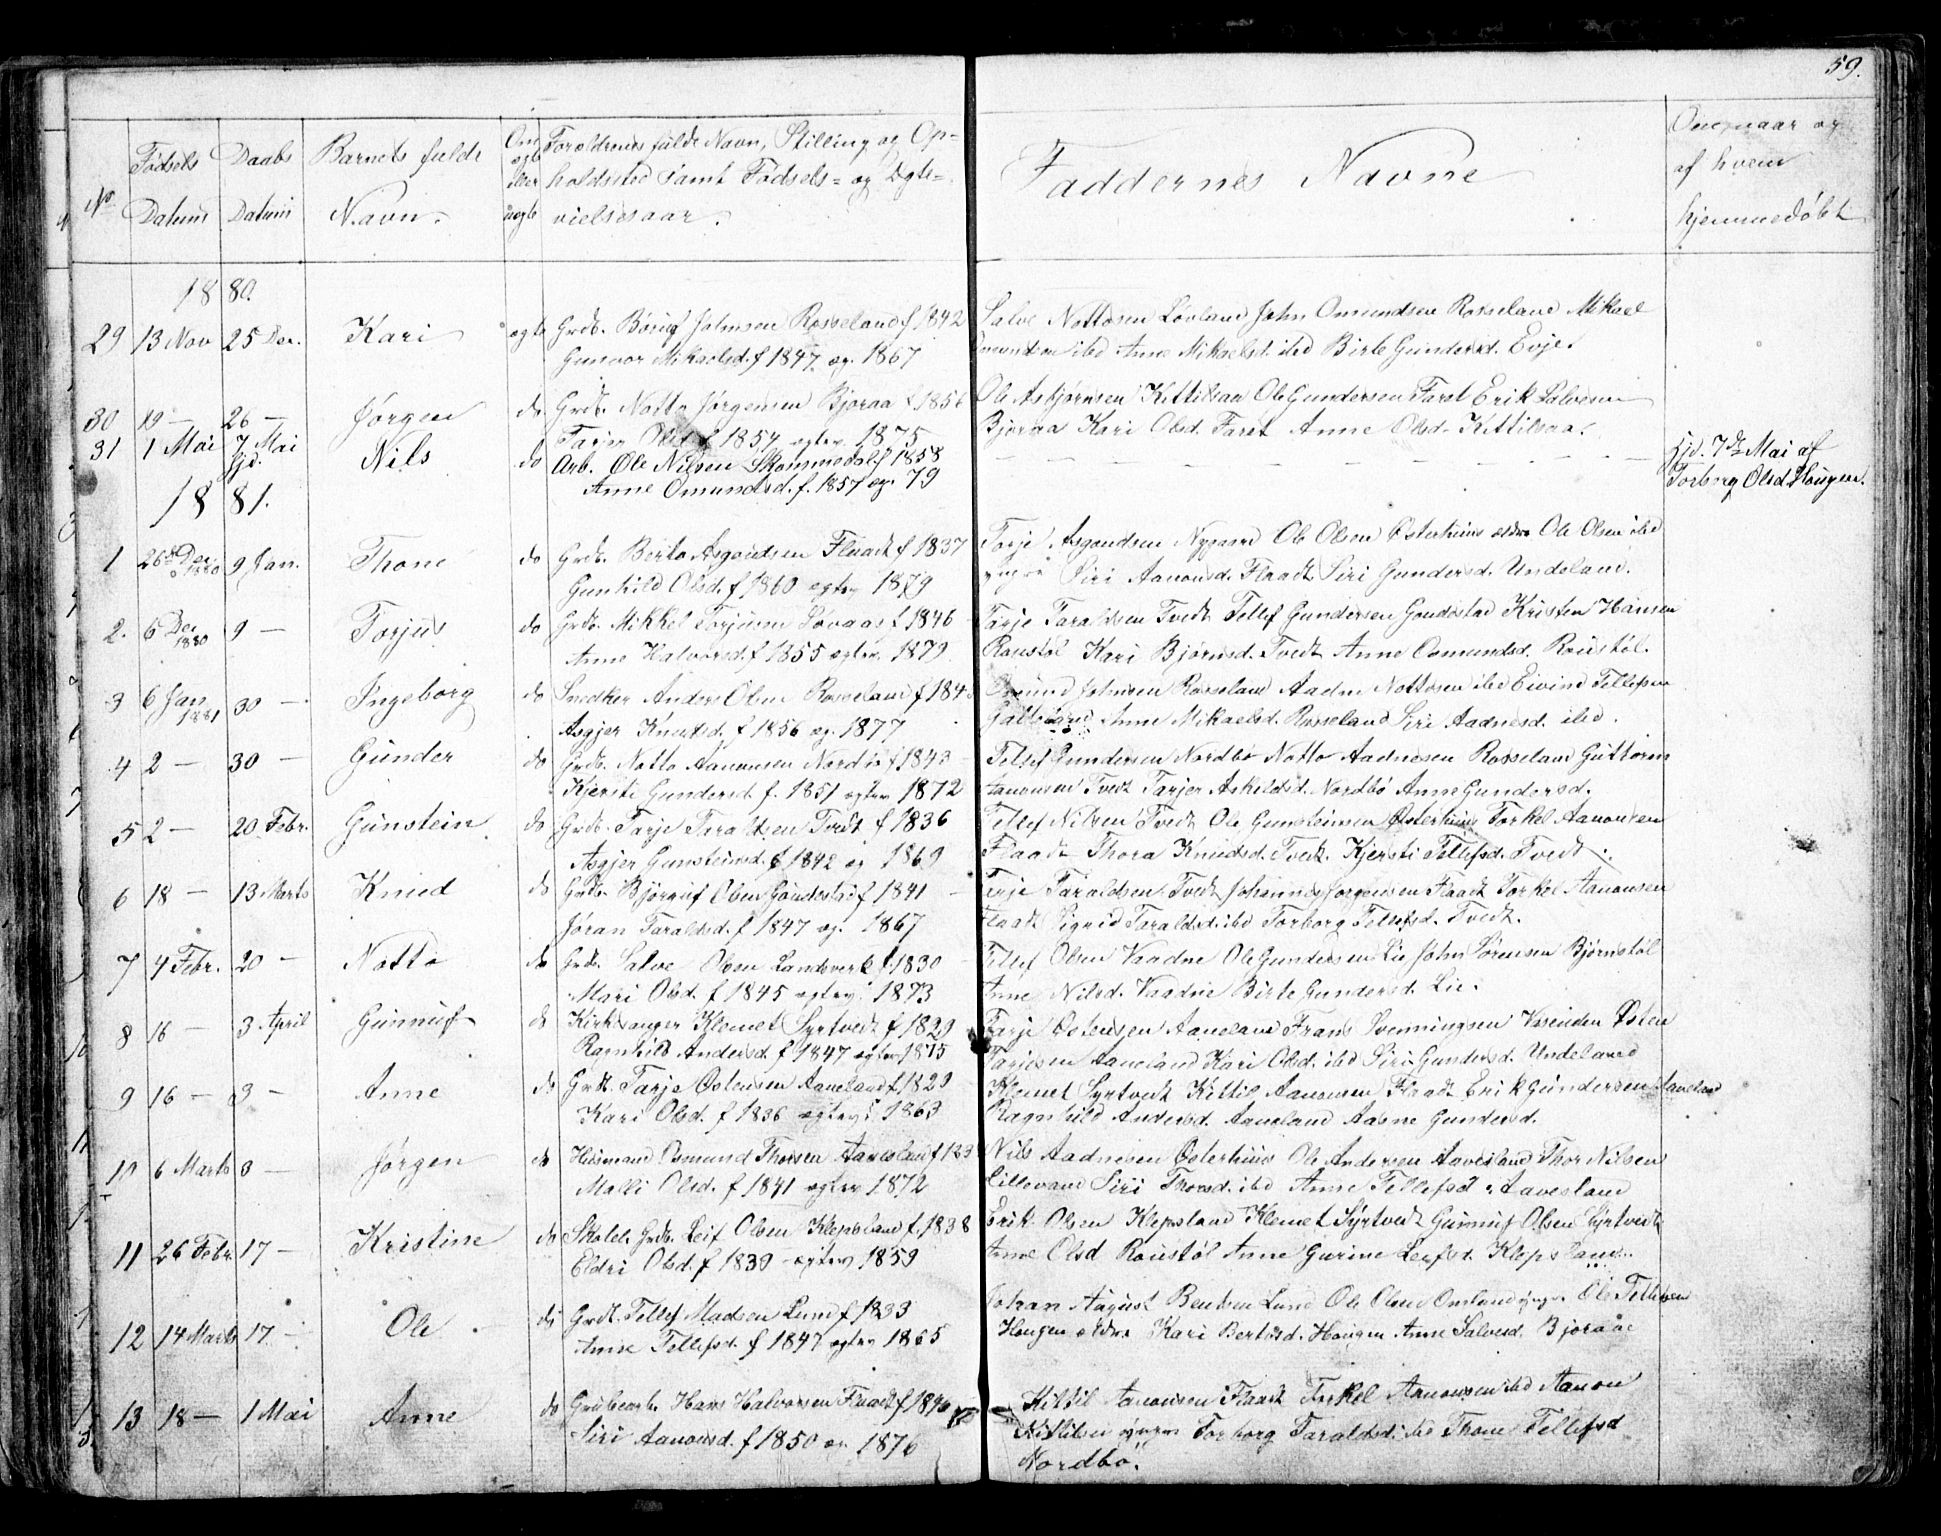 59.
No Fødsels Datum Daabs Datum Barnets fulde Navn. Om ægte eller uægte Forældrenes fulde Navn, Stilling og Opholdssted samt Fødsels= og Ægtevielsesaar. Faddernes Navne af hvem hjemmedøbt
1880.
29 13 Nov 25 Dec. Kari ægte Grdb. Johnsen Rosseland f 1842 Salve Nottosen Løvland John Omundsen Rosseland Mikael
Gunvor Mikaelsd. f 1847 æg. 1867 Omundsen ibd Anne Mikaelsd. ibd Birte Gundersd. Evje.
30 19 — 26 — Jørgen do Grdb. Notto Jørgensen Bjoraa f 1856 Ole Asbjørnsen Kittilsaa Ole Gundersen Faret Erik Salvesen
Tarjer Olsd f 1857 ægtev. 1875 Bjoraa Kari Olsd. Faret Anne Olsd. Kittilsaa.
31 1 Mai 7 Mai hjd. Nils do Arb. Ole Nilsen Skommedal f 1858 — — — hjd. 7de Mai af
Anne Omundsd. f. 1857 æg. 79 Torborg Olsd. Haugen.
1881.
1 26 Dec. 1880 9 Jan. Thone do Grdb. Berto Asgautsen Flaadt f 1837 Tarje Asgoudsen Nygaard Ole Olsen Østerhuus ældre Ole Olsen ibd
Gunhild Olsd. f 1860 ægtev 1879 yngre Siri Aanonsd. Flaadt Siri Gundersd. Undeland.
2. 6 Dec 1880 9 — Torjus do Grdb. Mikkel Torjusen Løvaas f 1846 Tarje Taraldsen Tvedt Tellef Gundersen Gaudestad Kristen Hansen
Anne Halvorsd. f 1855 ægtev. 1879. Roustøl Kari Bjørnsd. Tvedt Anne Osmundsd. Roustøl.
3 6 Jan 1881 30 — Ingeborg do Snedker Anders Olsen Rosseland f 184 Omund Johnsen Rosseland Aadne Nottosen ibd Eivind Tellefsen
Asgjer Knutsd. f 1856 æg. 1877 Anne Mikaelsd. Rosseland Siri Aadnesd. ibd.
4 2 — 30 — Gunder do Grdb. Notto Aanonsen Nordbø f 1843 Tellef Gundersen Nordbø Notto Aadnesen Rosseland Guttorm
Kjersti Gundersd f. 1851 ægtev 1872 Aanonsen Tvedt Tarjer Askildsd. Nordbø Anne Gundersd.
5 2 — 20 Febr. Gunstein do Grdb. Tarje Taraldsen Tvedt f 1836 Tellef Nilsen Tvedt Ole Gunsteinsen Østerhuus Torkel Aanonsen
Asgjer Gunsteinsd. f 1842 æg 1869 Flaadt Thora Knudsd. Tvedt. Kjersti Tellefsd. Tvedt.
6 18 — 13 Marts Knud do Grdb. Bjørnuf Olsen Gaudestad f 1841 Terje Taraldsen Tvedt Johannes Jørgensen Flaadt Torkel Aanonsen
Jøran Taraldsd. f 1847 æg. 1867 Flaadt Sigrid Taraldsd. ibd Torborg Tellefsd. Tvedt.
7 4 Febr. 20 — Notto do Grdb. Salve Olsen Landsverk f 1830 Tellef Olsen Vaadne Ole Gundersen Lie John Sørensen Bjørnstøl
Mari Olsd. f 1845 ægtev. 1873 Anne Nilsd. Vaadne Birte Gundersd. Lie.
8 16 — 3 April Gunnuf do Kirksanger Klemet Syrtvedt f 1829 Tarje Østensen Aaneland Frans Svenningsen Østen
Ragnhild Andersd. f 1847 ægtev 1875 Tarjesen Aaneland Kari Olsd. ibd Siri Gundersd. Undeland
9 16 — 3 — Anne do Grdb. Tarje Østensen Aaneland f 1829 Klemet Syrtvedt Kittil Aanonsen Flaadt Erik Gundersen Aaneland
Kari Olsd. f 1836 ægtev. 1863 Ragnhild Andersd. Aaneland Aasne Gundersd.
10 6 Marts 3 — Jørgen do Husmand Osmund Thorsen Aavesland f 183 Nils Aadnesen Østerhuus Ole Andersen Aavesland Thor Nilsen
Malli Olsd. f 1841 ægtev 1872 Lillevand Siri Thorsd. ibd Anne Tellefsd. Aavesland
11 26 Febr. 17 — Kristine do Skolel. Grdb. Leif Olsen Klepsland f. 1838 Erik Olsen Klepsland Klemet Syrtvedt Gunnuf Olsen Syrtvedt
Eldri Olsd. f 1839 ægtev 1859 Anne Olsd Roustøl Anne Gurine Leifsd. Klepsland.
12 14 Marts 17. — Ole do Grdb. Tellef Madsen Lund f 1833 Johan August Bentsen Lund Ole Olsen Omland yngre Ole Tellefsen
Anne Tellefsd. f 1847 ægtev 1865 Haugen ældre Kari Bertesd. Haugen Anne Salvesd. Bjoraae
13 18 — 1 Mai Anne do Grubearb. Hans Halvorsen Flaadt f 1846 Kittil Aanonsen Flaadt Torkel Aanonsen ibd Aanon
Siri Aanonsd. f 1850 æg. 1876 Kittilsen yngre Torborg Taraldsd. ibd Thone Tellefsd
Nordbø.